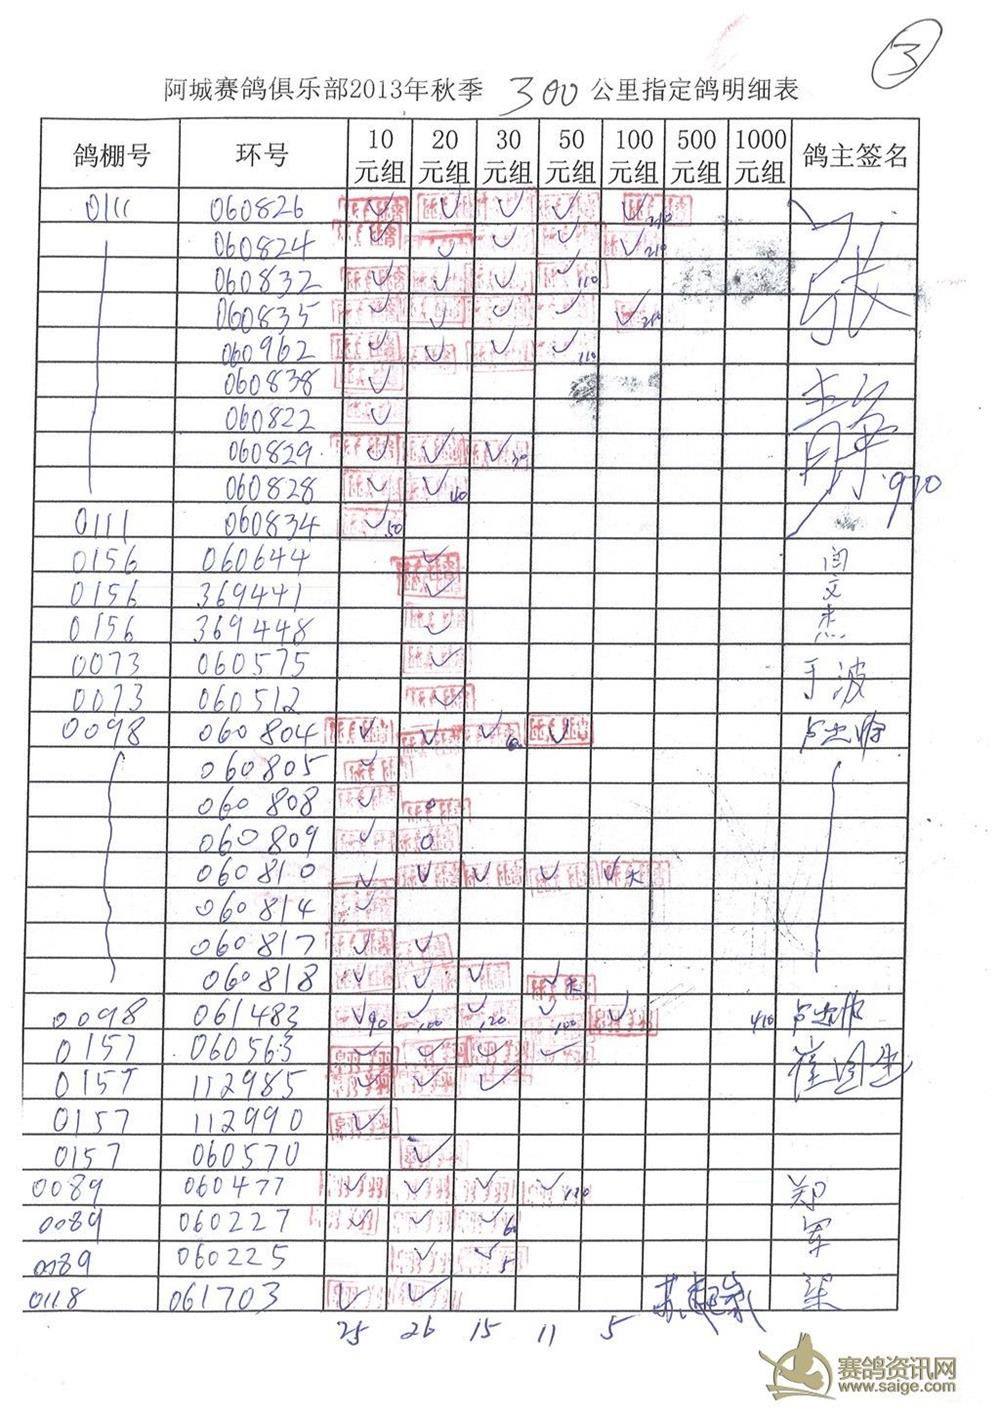 3
阿城赛鸽俱乐部2013年秋季 300 公里指定鸽明细表
鸽棚号 环号 10元组 20元组 30元组 50元组 100元组 500元组 1000元组 鸽主签名
0111 060826 ✓ ✓ ✓ ✓ ✓ 210 张
060824 ✓ ✓ ✓ ✓ ✓ 210
060832 ✓ ✓ ✓ ✓ 110
060835 ✓ ✓ ✓ ✓ 210
060962 ✓ ✓ ✓ ✓ 110
060838 ✓
060822 ✓
060829 ✓ ✓ ✓
060828 ✓ ✓ 970
0111 060834 ✓ 50
0156 060644 ✓ 闫
0156 369441 ✓ 文
0156 369448 ✓ 杰
0073 060575 ✓ 于波
0073 060512 ✓
0098 060804 ✓ ✓ ✓ ✓
060805 ✓
060808 ✓ 0
060809 ✓ 0
060810 ✓ ✓ ✓ ✓ ✓
060814 ✓
060817 ✓ ✓
060818 ✓ ✓ ✓ ✓
0098 061483 ✓ 90 ✓ 100 ✓ 120 ✓ 100 ✓ 410
0157 060563 ✓ ✓ ✓ ✓
0157 112985 ✓ ✓ ✓
0157 112990 ✓
0157 060570 ✓
0089 060477 ✓ ✓ ✓ ✓ 110 郑
0089 060227 ✓ ✓ ✓ 60 军
0089 060225 ✓ ✓
0118 061703 ✓ ✓
25 26 15 11 5
赛鸽资讯网
www.saige.com